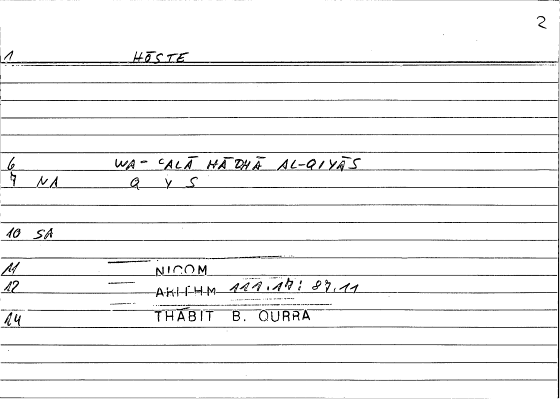 2
1 HŌSTE
6 WA- ʿALĀ HĀDHĀ AL-QIYĀS
7 NA Q Y S
10 SA
11 NICOM
12 ARITHM 111.17: 87.11
14 THĀBIT B. QURRA